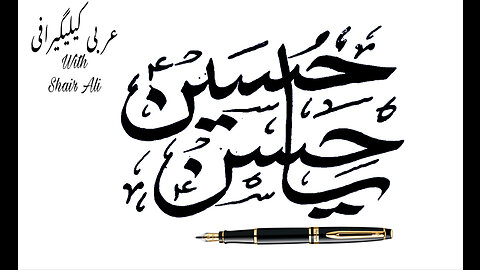 عربی کیلیگرافی
With
Shair Ali
حُسین
یا حسن